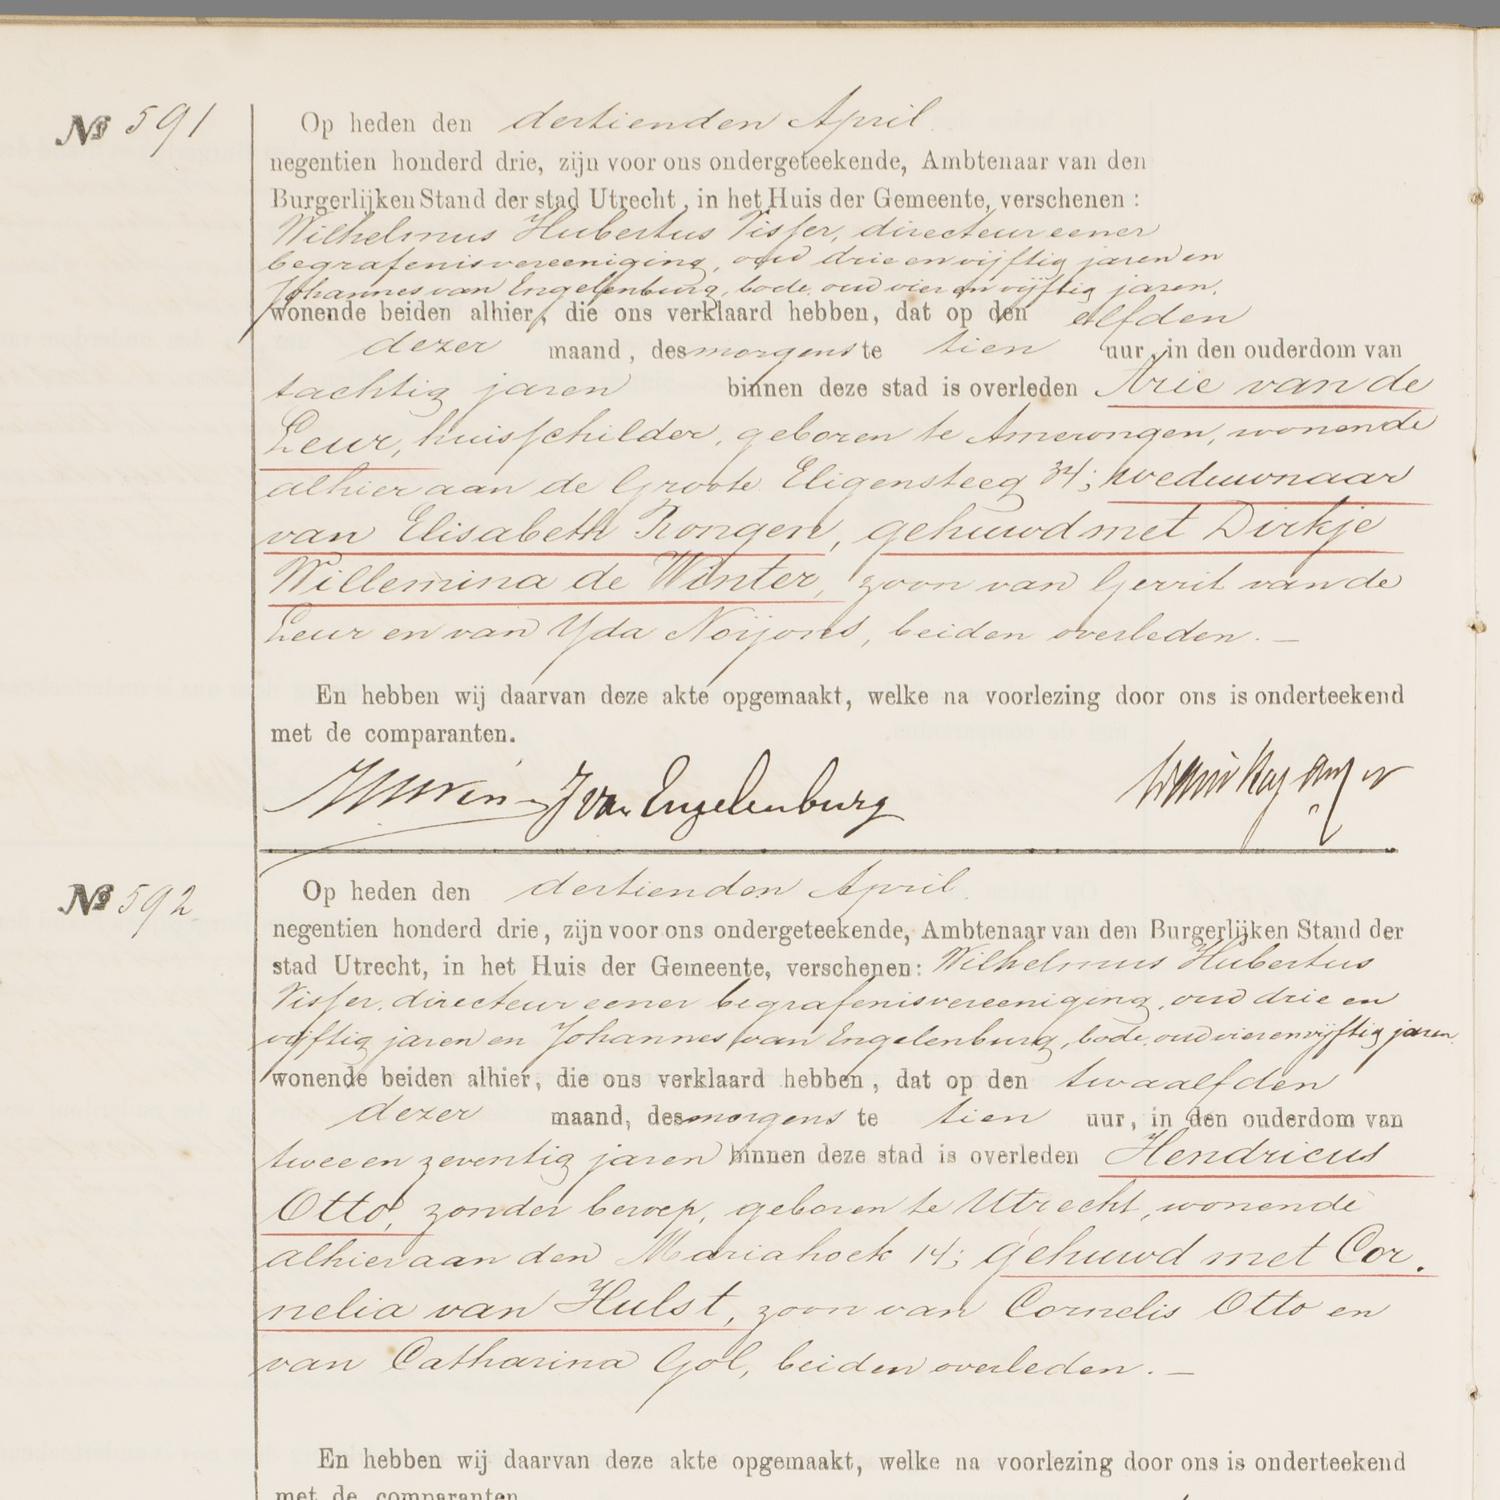 № 591
Op heden den dertienden April
negentien honderd drie, zijn voor ons ondergeteekende, Ambtenaar van den
Burgerlijken Stand der stad Utrecht, in het Huis der Gemeente, verschenen:
Wilhelmus Hubertus Visser, directeur eener
begrafenisvereeniging, oud drie en vijftig jaren en
Johannes van Engelenburg, bode, oud vier en vijftig jaren,
wonende beiden alhier, die ons verklaard hebben, dat op den elfden
dezer maand, des morgens te tien uur, in den ouderdom van
tachtig jaren binnen deze stad is overleden Arie van de
Leur, huisschilder, geboren te Amerongen, wonende
alhier aan de Groote Eligensteeg 34; weduwnaar
van Elisabeth Rongen, gehuwd met Dirkje
Willemina de Winter, zoon van Gerrit van de
Leur en van Yda Noijons, beiden overleden. —
En hebben wij daarvan deze akte opgemaakt, welke na voorlezing door ons is onderteekend
met de comparanten.
J van Engelenburg
№ 592
Op heden den dertienden April
negentien honderd drie, zijn voor ons ondergeteekende, Ambtenaar van den Burgerlijken Stand der
stad Utrecht, in het Huis der Gemeente, verschenen: Wilhelmus Hubertus
Visser, directeur eener begrafenisvereeniging, oud drie en
vijftig jaren en Johannes van Engelenburg, bode, oud vier en vijftig jaren
wonende beiden alhier, die ons verklaard hebben, dat op den twaalfden
dezer maand, des morgens te tien uur, in den ouderdom van
twee en zeventig jaren binnen deze stad is overleden Hendricus
Otto, zonder beroep, geboren te Utrecht, wonende
alhier aan den Mariahoek 14; gehuwd met Cor.
nelia van Hulst, zoon van Cornelis Otto en
van Catharina Gol, beiden overleden. —
En hebben wij daarvan deze akte opgemaakt, welke na voorlezing door ons is onderteekend
met de comparanten.